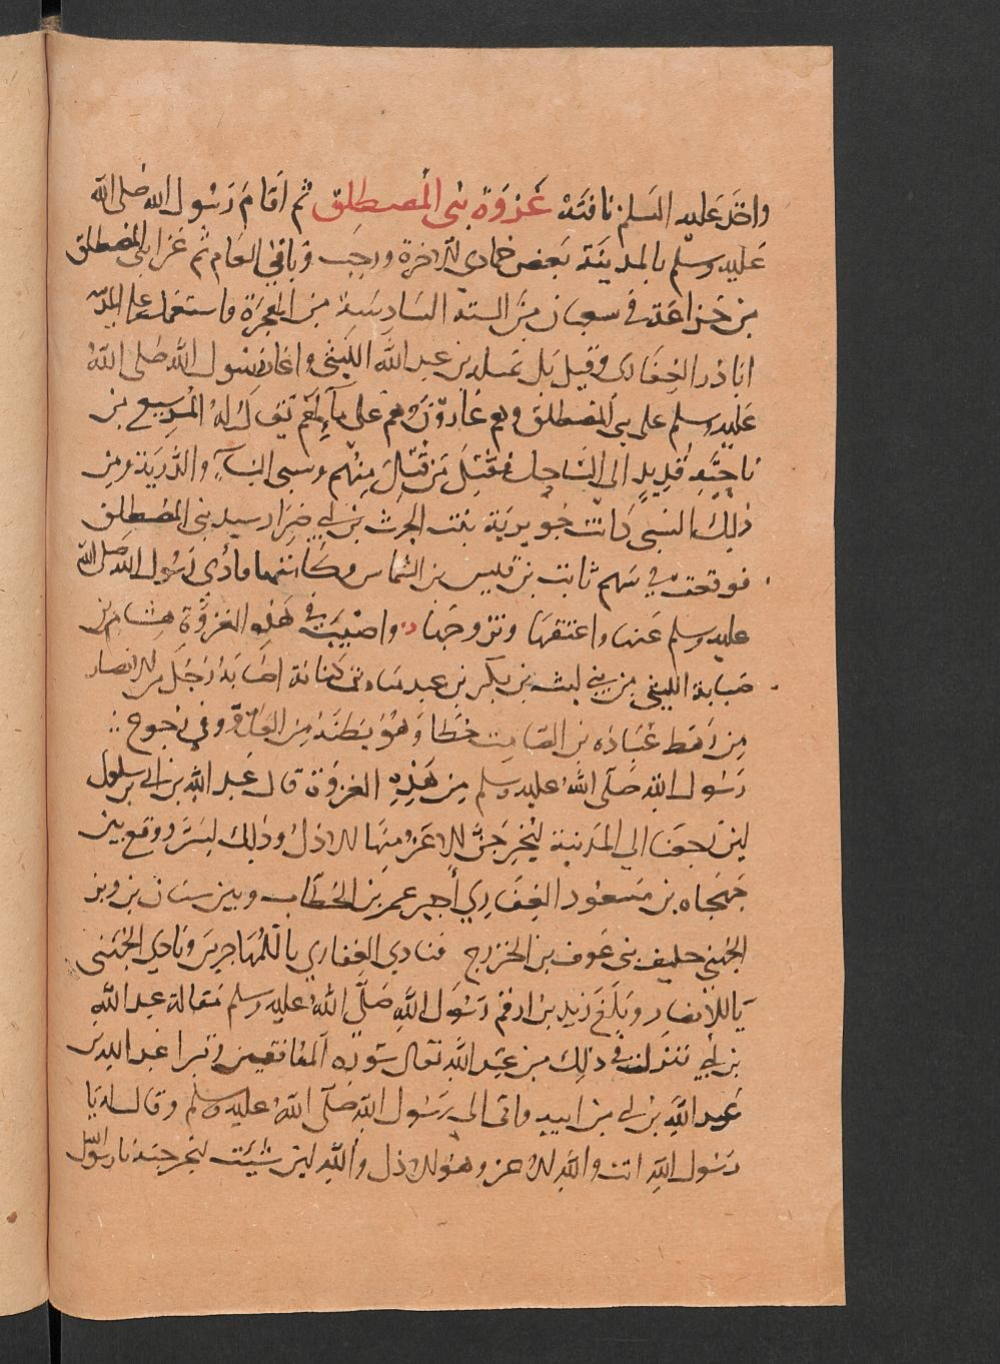 واخذ عليه السلم ناقته غزوة بنى المصطلق ثم اقام رسول الله صلى الله
عليه وسلم بالمدينة بعض جمادى الاخرة ورجب وباقي العام ثم غزا بنى المصطلق
من خزاعة في شعبان من السنة السادسة من الهجرة واستعمل على المدينة
اباذر الغفارى وقيل بل نميلة بن عبد الله الليثى واغار رسول الله صلى الله
عليه وسلم على بنى المصطلق وهم غارون وهم على ماء لهم يقال له المريسيع من
ناحية قديد الى الساحل فقتل من قتل منهم وسبى النساء والذرية ومن
ذلك السبي كانت جويرية بنت الحرث بن ابي ضرار سيد بنى المصطلق
فوقعت في سهم ثابت بن قيس بن الشماس وكاتبها فأدى رسول الله صلى الله
عليه وسلم عنها واعتقها وتزوجها واصيب في هذه الغزوة هشام بن
ضبابة الليثى من بني ليث بن بكر بن عبد مناة بن كنانة اصابه رجل من الانصار
من رهط عبادة بن الصامت خطا وهو يظنه من العدو وفي رجوع
رسول الله صلى الله عليه وسلم من هذه الغزوة قال عبد الله بن ابي بن سلول
لين رجعنا الي المدينة ليخرجن الاعز منها الاذل وذلك لشر وقع بين
جهجاه بن مسعود الغفاري أجير عمر بن الخطاب وبين سنان بن وبر
الجهني حليف بنى عوف بن الخزرج فنادي الغفاري ياللمهاجرين ونادي الجهنى
ياللانصار وبلغ زيد بن ارقم رسول الله صلى الله عليه وسلم مقالة عبد الله
بن ابي فنزلت في ذلك من عند الله تعالى سورة المنافقين وتبرا عبد الله بن
عبد الله بن ابي من ابيه واتى الى رسول الله صلى الله عليه وسلم وقال له يا
رسول الله انت والله الاعز وهو الاذل والله لين شيئت لنخرجنه يا رسول الله